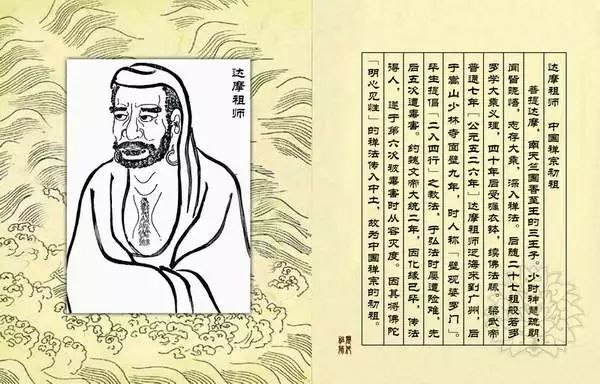 达摩祖师
达摩祖师　中国禅宗初祖
菩提达摩，南天竺国香至王的三王子。少时神慧疏朗，
闻皆晓悟，志存大乘，深入禅法。后随二十七祖般若多
罗学大乘义理，四十年后受嘱衣钵，续佛法脉。梁武帝
普通七年〔公元五二六年〕达摩祖师泛海来到广州，后
于嵩山少林寺面壁九年，时人称「壁观婆罗门」。
毕生提倡「二入四行」之教法，于弘法时屡遭险难，先
后五次遭毒害。约魏文帝大统二年，因化缘已毕，传法
得人，遂于第六次被毒害时从容灭度。因其将佛陀
「明心见性」的禅法传入中土，故为中国禅宗的初祖。